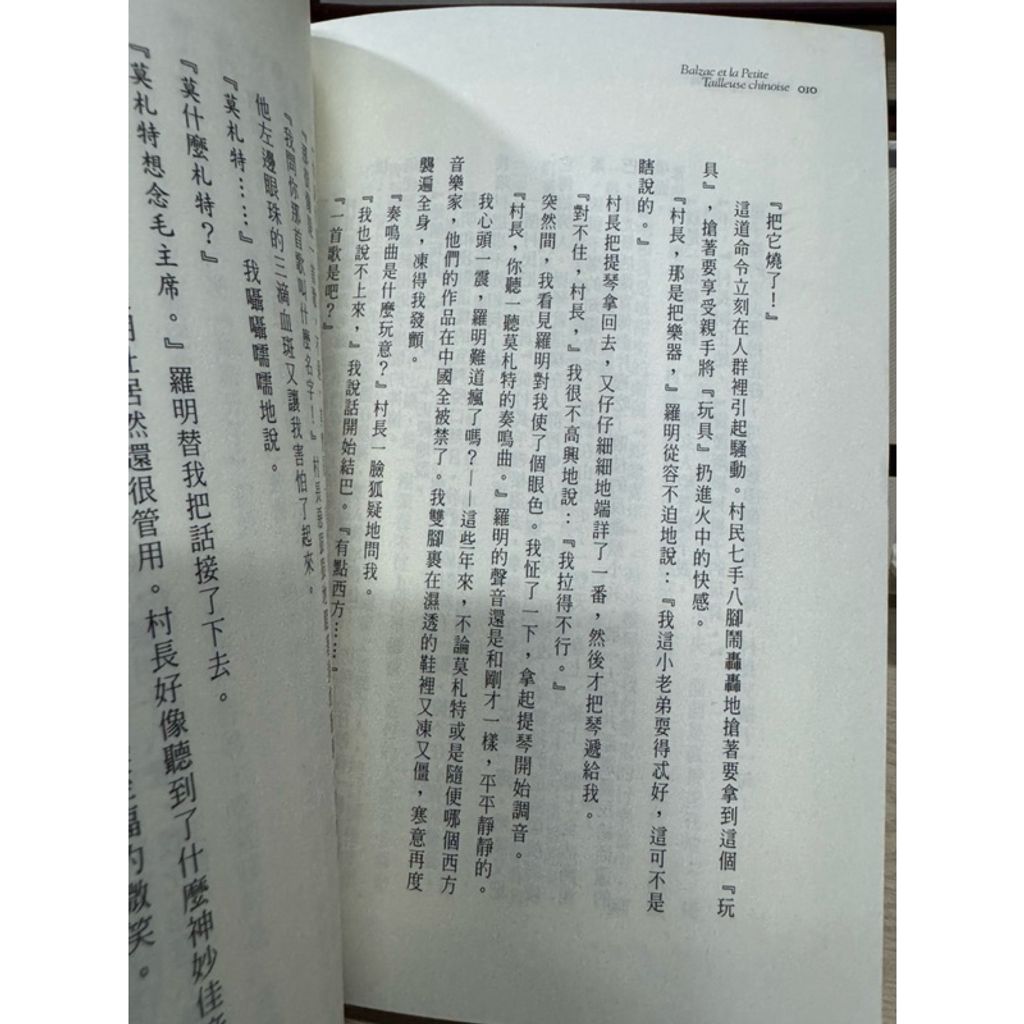 Balzac et la Petite
Tailleuse chinoise 010
『把它燒了！』
這道命令立刻在人群裡引起騷動。村民七手八腳鬧轟轟地搶著要拿到這個『玩
具』，搶著要享受親手將『玩具』扔進火中的快感。
『村長，那是把樂器，』羅明從容不迫地說：『我這小老弟耍得忒好，這可不是
瞎說的。』
村長把提琴拿回去，又仔仔細細地端詳了一番，然後才把琴遞給我。
『對不住，村長，』我很不高興地說：『我拉得不行。』
突然間，我看見羅明對我使了個眼色。我怔了一下，拿起提琴開始調音。
『村長，你聽一聽莫札特的奏鳴曲。』羅明的聲音還是和剛才一樣，平平靜靜的。
我心頭一震，羅明難道瘋了嗎？——這些年來，不論莫札特或是隨便哪個西方
音樂家，他們的作品在中國全被禁了。我雙腳裹在濕透的鞋裡又凍又僵，寒意再度
襲遍全身，凍得我發顫。
『奏鳴曲是什麼玩意？』村長一臉狐疑地問我。
『我也說不上來，』我說話開始結巴。『有點西方……』
『一首歌是吧？』
『我問你那首歌叫什麼名字！』
他左邊眼珠的三滴血斑又讓我害怕了起來。
『莫札特……』我囁囁嚅嚅地說。
『莫什麼札特？』
『莫札特想念毛主席。』羅明替我把話接了下去。
居然還很管用。村長好像聽到了什麼神妙佳
的微笑。